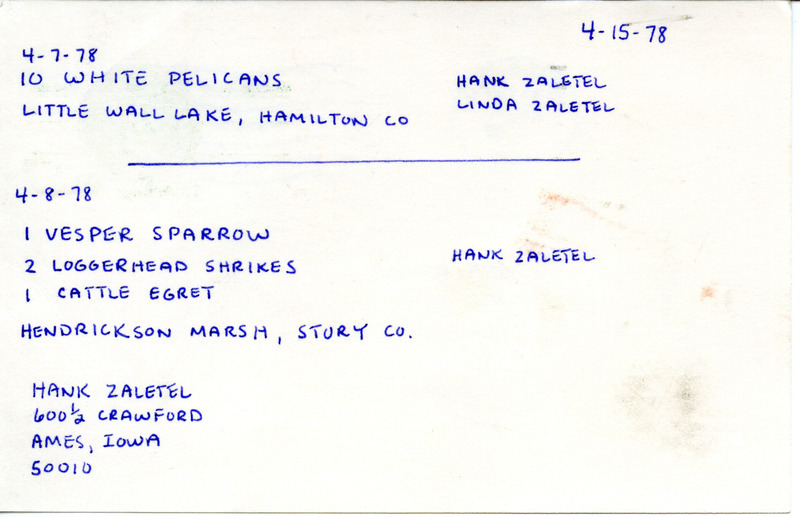 4-15-78
4-7-78
10 WHITE PELICANS
HANK ZALETEL
LITTLE WALL LAKE, HAMILTON CO
LINDA ZALETEL
4-8-78
1 VESPER SPARROW
2 LOGGERHEAD SHRIKES
HANK ZALETEL
1 CATTLE EGRET
HENDRICKSON MARSH, STORY CO.
HANK ZALETEL
600½ CRAWFORD
AMES, IOWA
50010